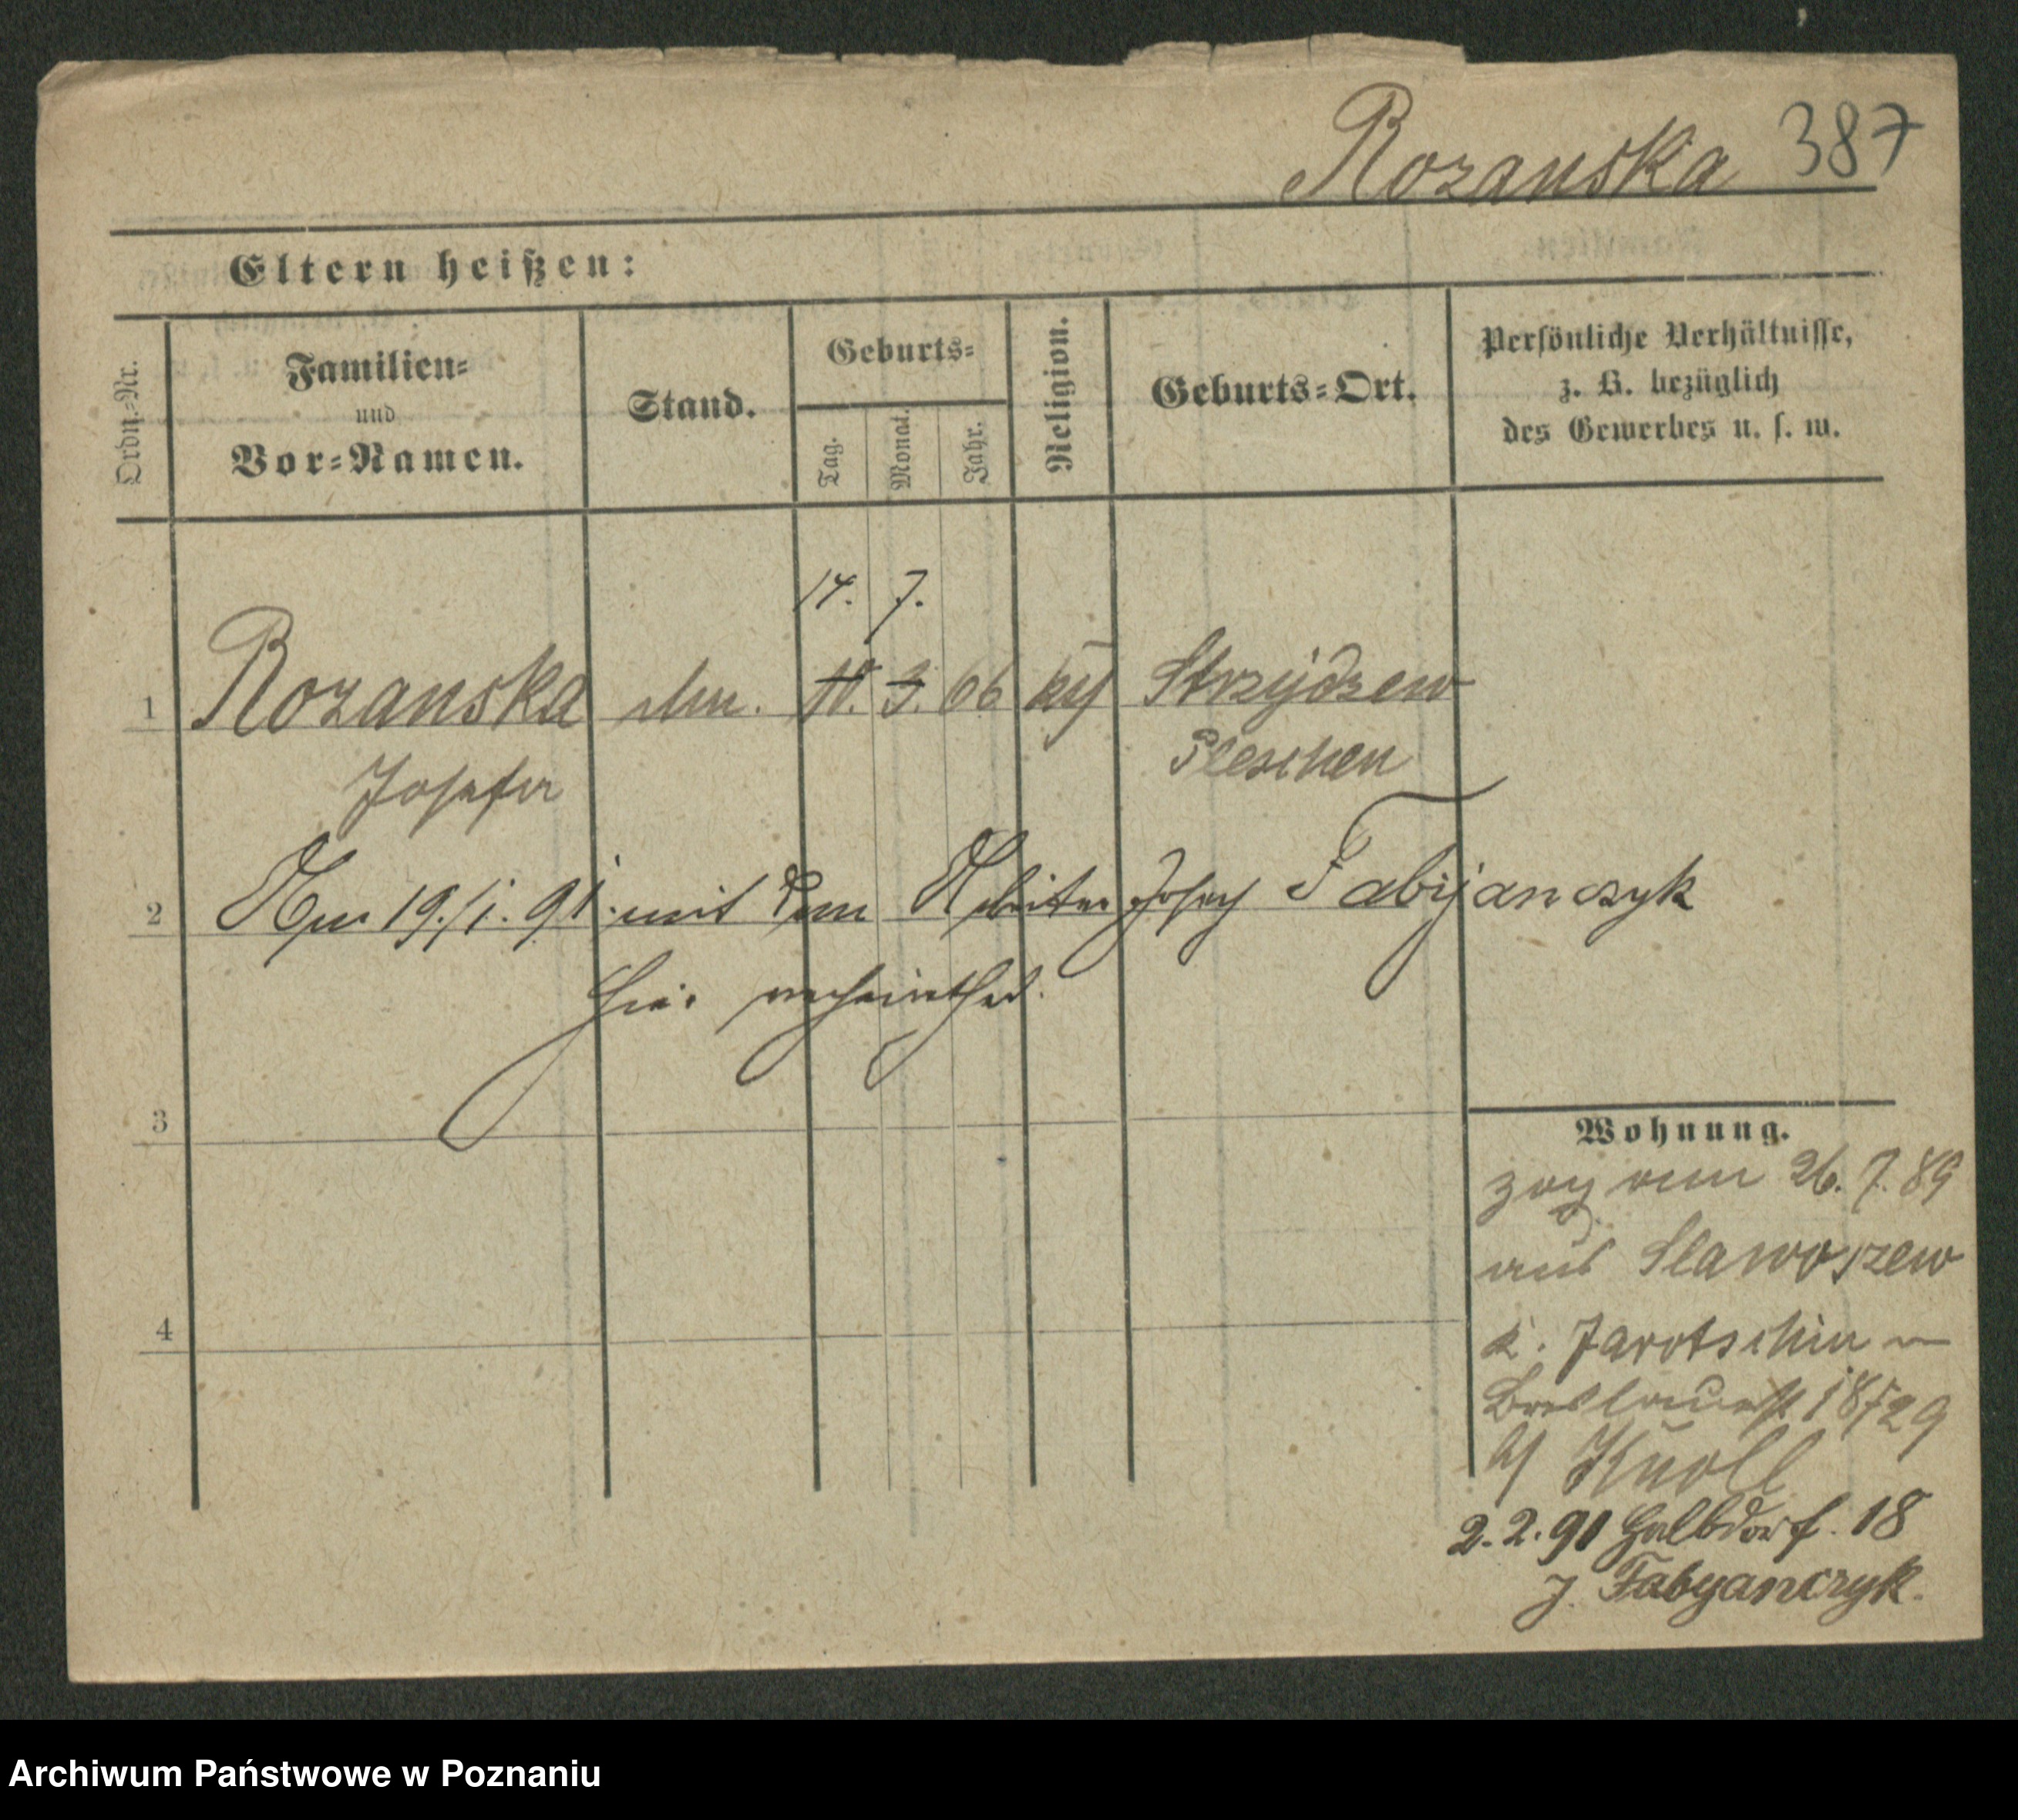 Rozanska 387
Eltern heißen:
Ordn.-Nr.
Familien-
und
Vor-Namen.
Stand.
Geburts-
Tag.
Monat.
Jahr.
Religion.
Geburts-Ort.
Persönliche Verhältnisse,
z. B. bezüglich
des Gewerbes u. s. w.
14. 7.
1 Rozanska 10. 3. 66 Strzydzew
Josefa Pleschen
2 Am 19./1. 91. mit dem Arbeiter Josef Fabijanczyk
hier verheirathet.
3
4
Wohnung.
zog am 26. 7. 89
aus Slawoszew
K. Jarotschin
18/29
b/ Knoll
2. 2. 91 Halbdorf. 18
J. Fabyanczyk.
Archiwum Państwowe w Poznaniu